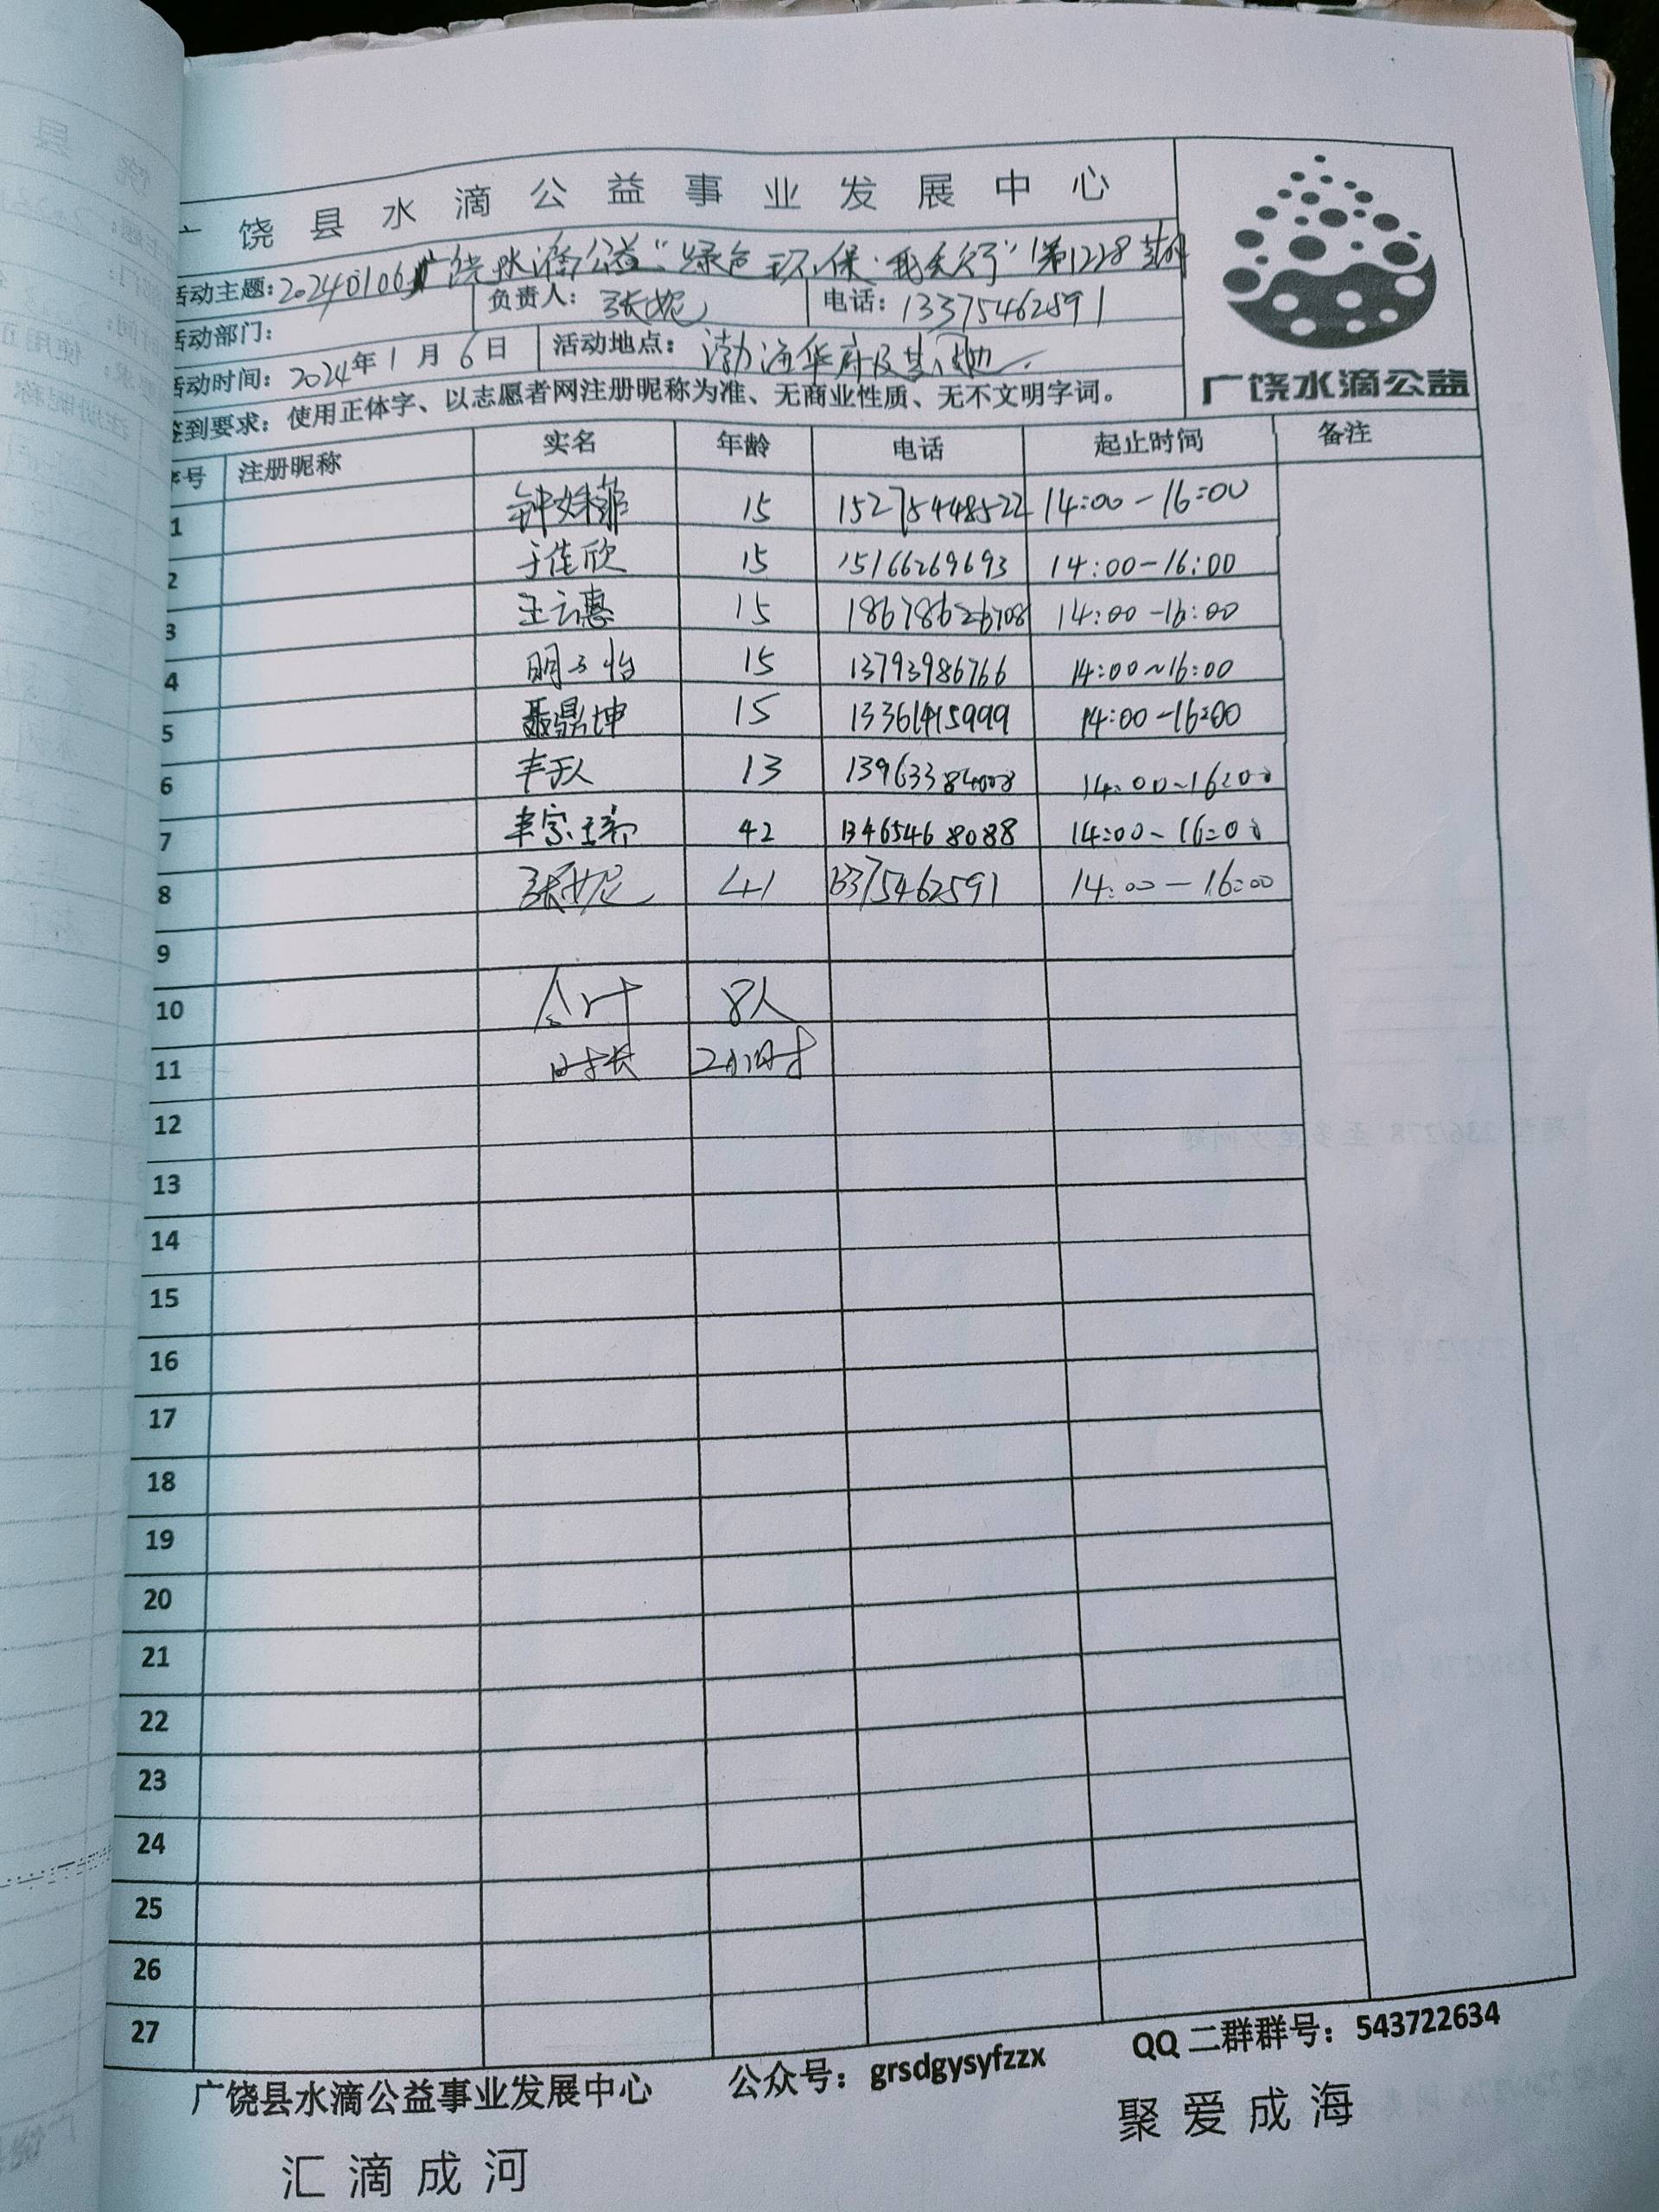 广饶县水滴公益事业发展中心
活动主题：20240106广饶水滴公益“绿色环保·我先行”(第1228期)
活动部门： 负责人：张妮 电话：13375462591
活动时间：2024年1月6日 活动地点：渤海华府及其周边
签到要求：使用正体字、以志愿者网注册昵称为准、无商业性质、无不文明字词。
广饶水滴公益
序号 注册昵称 实名 年龄 电话 起止时间 备注
1 钟姝菲 15 15275448522 14:00-16:00
2 于佳欣 15 15166269693 14:00-16:00
3 王云惠 15 18678626708 14:00-16:00
4 明子怡 15 13793986766 14:00~16:00
5 聂鼎坤 15 14:00-16:00
6 13 14:00~16:00
7 42 13465468088 14:00-16:00
8 张妮 41 13375462591 14:00-16:00
9
10 合计 8人
11 时长 2小时
12
13
14
15
16
17
18
19
20
21
22
23
24
25
26
27
广饶县水滴公益事业发展中心 公众号：grsdgysyfzzx QQ二群群号：543722634
汇滴成河 聚爱成海